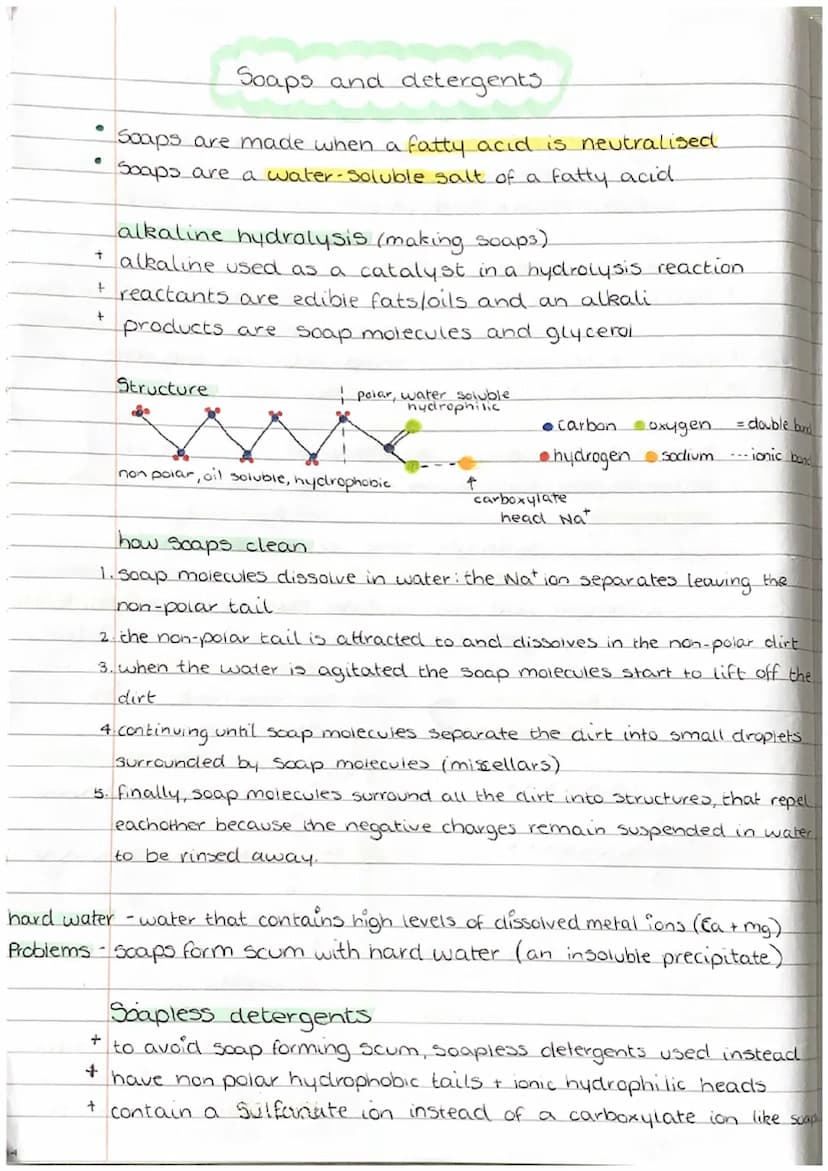 Soaps and detergents
• Soaps are made when a fatty acid is neutralised
• Soaps are a water-soluble salt of a fatty acid
alkaline hydrolysis (making soaps)
+ alkaline used as a catalyst in a hydrolysis reaction
+ reactants are edible fats/oils and an alkali
+ products are soap molecules and glycerol
Structure
polar, water soluble
hydrophilic
• carbon • oxygen = double bond
• hydrogen • sodium --- ionic bond
non polar, oil soluble, hydrophobic
↑
carboxylate
head Na⁺
how soaps clean
1. soap molecules dissolve in water: the Na⁺ ion separates leaving the
non-polar tail
2. the non-polar tail is attracted to and dissolves in the non-polar dirt
3. when the water is agitated the soap molecules start to lift off the
dirt
4. continuing until soap molecules separate the dirt into small droplets
surrounded by soap molecules (missellars)
5. finally, soap molecules surround all the dirt into structures, that repel
eachother because the negative charges remain suspended in water
to be rinsed away.
hard water - water that contains high levels of dissolved metal ions (Ca + mg)
Problems - soaps form scum with hard water (an insoluble precipitate)
Soapless detergents
+ to avoid soap forming scum, soapless detergents used instead
+ have non polar hydrophobic tails + ionic hydrophilic heads
+ contain a Sulfonate ion instead of a carboxylate ion like soap